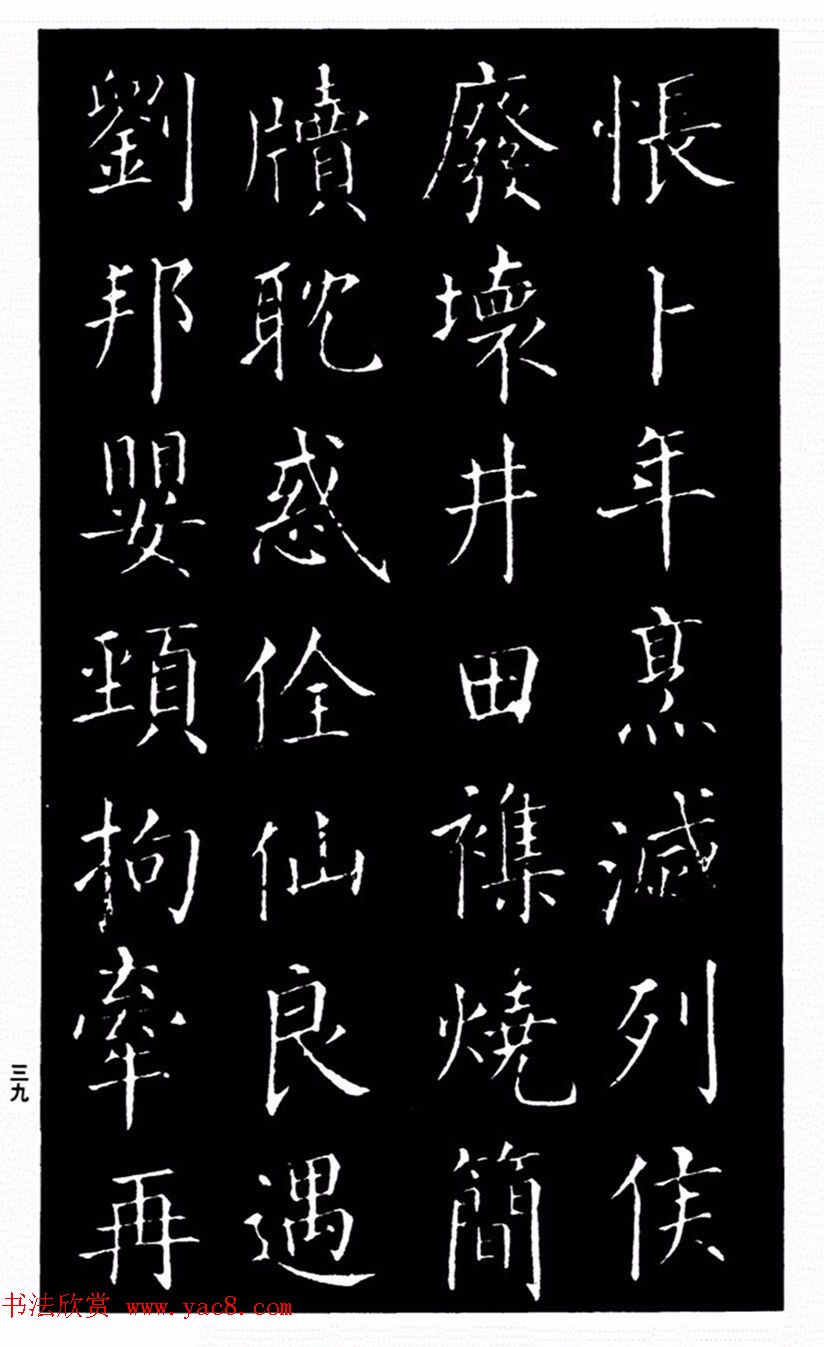 悵卜年烹滅列侯
廢壞井田襍燒簡
牘耽惑佺仙良遇
劉邦嬰頸拘牽再
三九
书法欣赏 www.yac8.com